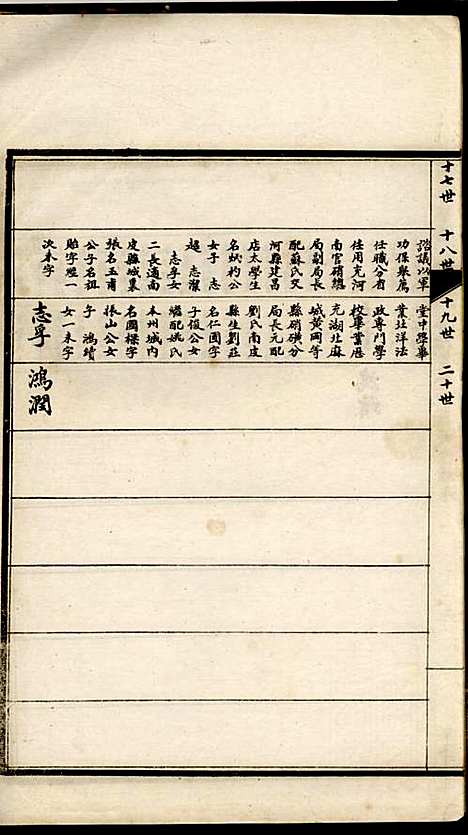 十七世
十八世
十九世
二十世
諮議以軍
功保舉薦
任職分省
任用充河
南官硝總
局副局長
配蘇氏又
河縣建昌
店太學生
名炳灼公
女子 志
超 志潔
志孚女
二長適南
皮縣城裏
張名玉甫
公子名祖
貽字燈一
次未字
堂中學畢
業北洋法
政專門學
校畢業歷
充湖北麻
城黃岡等
縣硝磺分
局長元配
劉氏南皮
縣生劉莊
名仁圃字
子俊公女
繼配姚氏
本州城內
名國樑字
振山公女
子 鴻績
女一未字
志孚
鴻潤